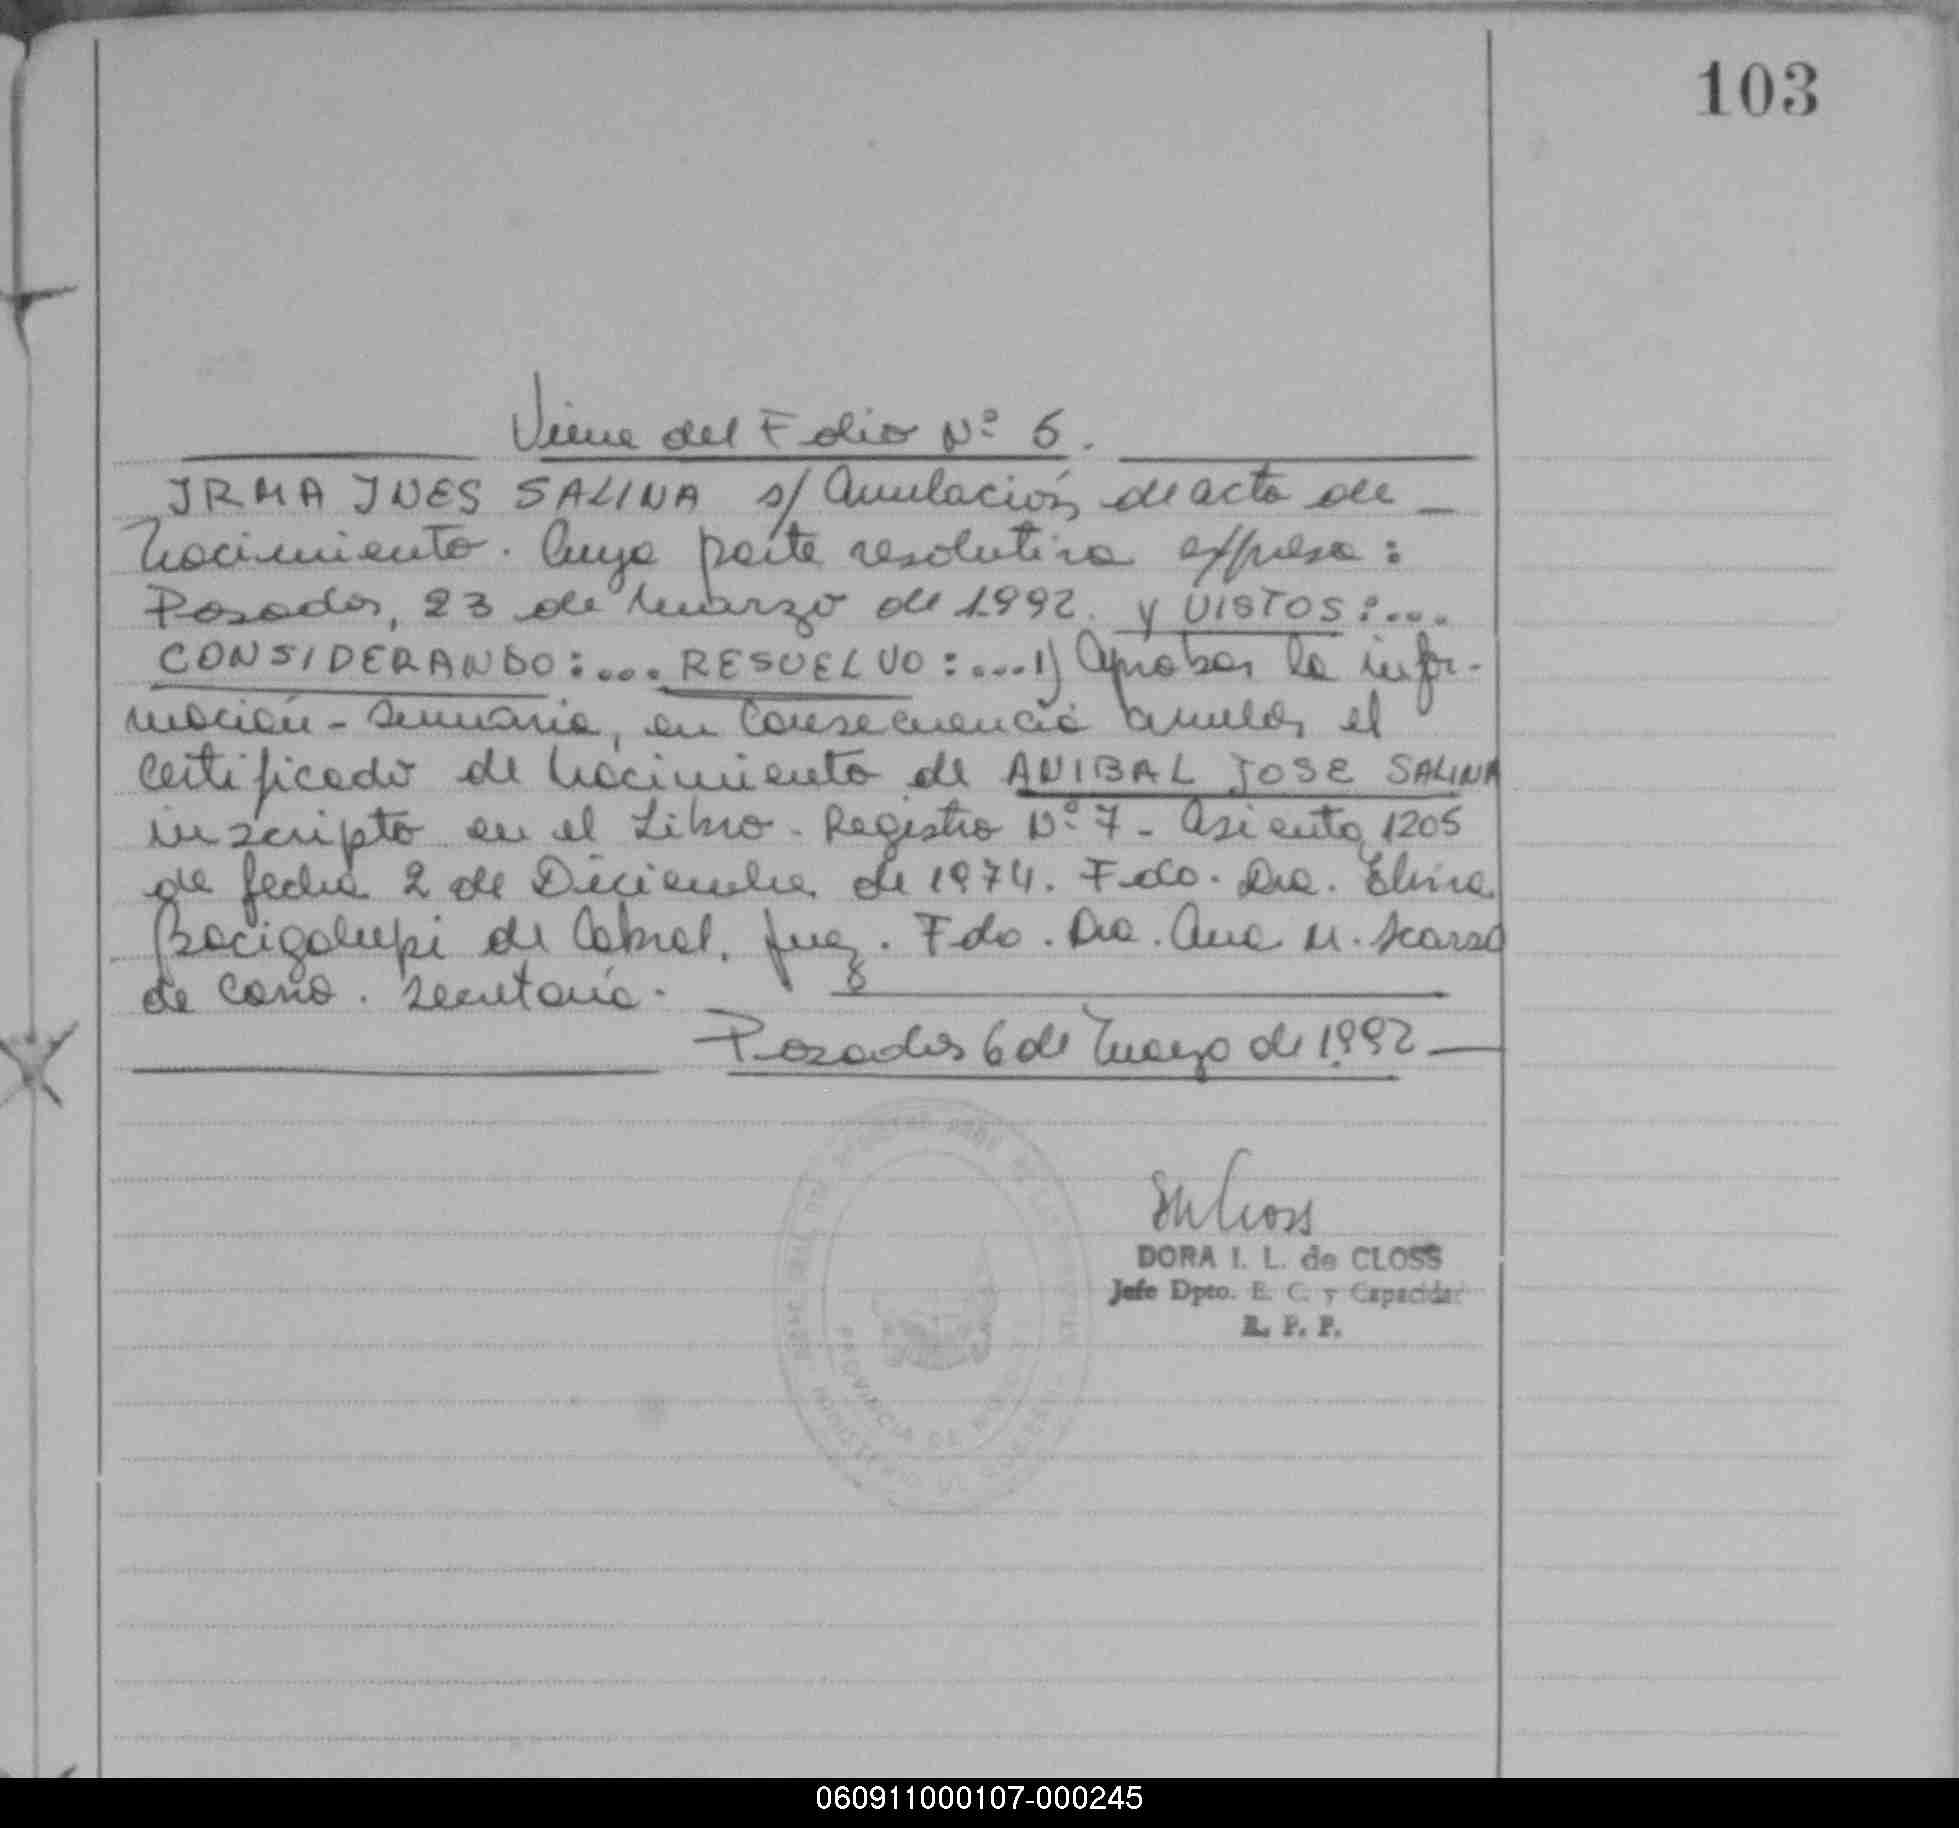 103
Viene del Folio Nº 6.
IRMA INES SALINA s/ Anulación de acta de
Nacimiento. Cuya parte resolutiva expresa:
Posadas, 23 de Marzo de 1992. Y VISTOS:...
CONSIDERANDO:... RESUELVO:...1) Aprobar la infor-
mación-sumaria, en consecuencia anular el
certificado de Nacimiento de ANIBAL JOSE SALINA
inscripto en el Libro-Registro Nº 7- Asiento 1205
de fecha 2 de Diciembre de 1974. Fdo. Dra. Elvira
Bacigalupi de Cabral. Juez. Fdo. Dra. Ana M.
de Cano. Secretaria.
Posadas 6 de Mayo de 1992
DORA I. L. de CLOSS
Jefe Dpto. E. C. y Capacidad
R. P. P.
PROVINCIA DE
MINISTERIO DE
060911000107-000245